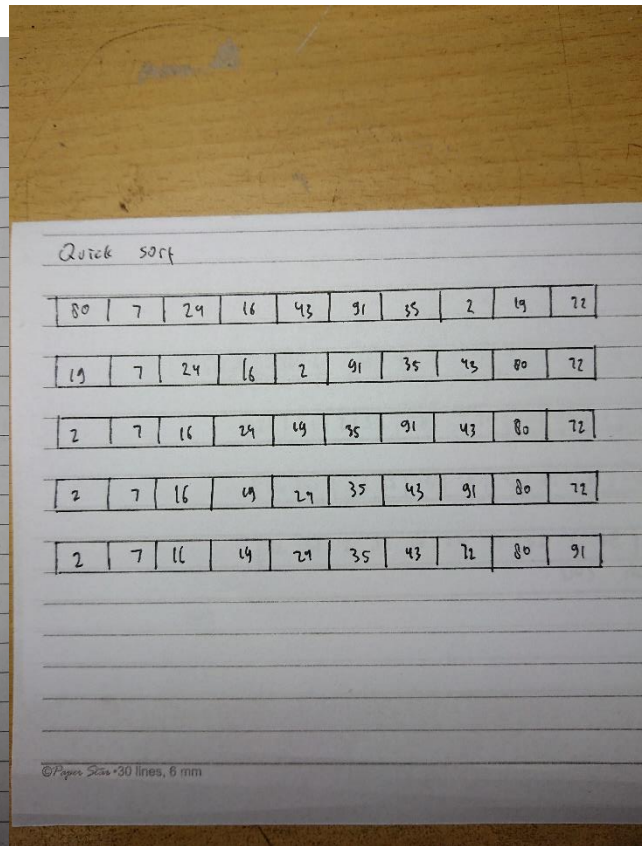 Quick sort
80 7 24 16 43 91 35 2 19 72
19 7 24 16 2 91 35 43 80 72
2 7 16 24 19 35 91 43 80 72
2 7 16 19 24 35 43 91 80 72
2 7 16 19 24 35 43 72 80 91
©Paper Star•30 lines, 6 mm